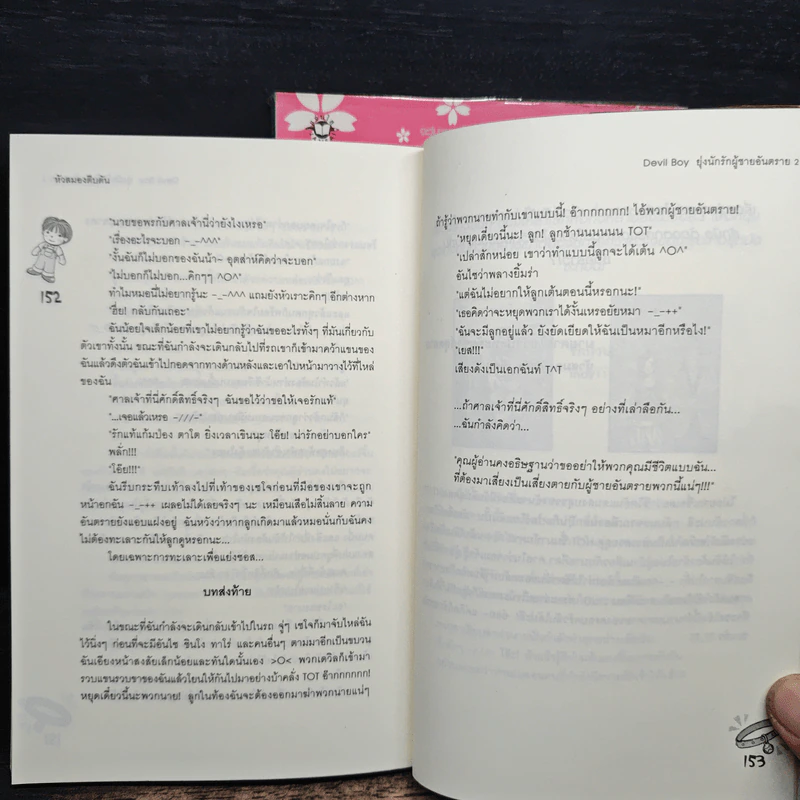 หัวสมองตีบตัน
"นายขอพรกับศาลเจ้านี่ว่ายังไงเหรอ"
"เรื่องอะไรจะบอก -_-^^^"
"งั้นฉันก็ไม่บอกของฉันน้า~ อุตส่าห์คิดว่าจะบอก"
"ไม่บอกก็ไม่บอก...คิกๆๆ ^O^"
ทำไมหมอนี่ไม่อยากรู้นะ -_-^^^ แถมยังหัวเราะคิกๆ อีกต่างหาก
"ชิ่ย! กลับกันเถอะ"
ฉันน้อยใจเล็กน้อยที่เขาไม่อยากรู้ว่าฉันขออะไรทั้งๆ ที่มันเกี่ยวกับ
ตัวเขาทั้งนั้น ขณะที่ฉันกำลังจะเดินกลับไปที่รถเขาก็เข้ามาคว้าแขนของ
ฉันแล้วดึงตัวฉันเข้าไปกอดจากทางด้านหลังและเอาใบหน้ามาวางไว้ที่ไหล่
ของฉัน
"ศาลเจ้าที่นี่ศักดิ์สิทธิ์จริงๆ ฉันขอไว้ว่าขอให้เจอรักแท้"
"...เจอแล้วเหรอ -///-"
"รักแท้แก้มป่อง ตาโต ยิ่งเวลาเขินนะ โอ๊ย! น่ารักอย่าบอกใคร"
พลั่ก!!!
"โอ๊ย!!!"
ฉันรีบกระทืบเท้าลงไปที่เท้าของเซโจก่อนที่มือของเขาจะถูก
หน้าอกฉัน -_-++ เผลอไม่ได้เลยจริงๆ นะ เหมือนเสือไม่สิ้นลาย ความ
อันตรายยังแอบแฝงอยู่ ฉันหวังว่าหากลูกเกิดมาแล้วหมอนั่นกับฉันคง
ไม่ต้องทะเลาะกันให้ลูกดูหรอกนะ...
โดยเฉพาะการทะเลาะเพื่อแย่งซอส...
บทส่งท้าย
ในขณะที่ฉันกำลังจะเดินกลับเข้าไปในรถ จู่ๆ เซโจก็มาจับไหล่ฉัน
ไว้นิ่งๆ ก่อนที่จะมีอันไซ ชินโง ทาโร่ และคนอื่นๆ ตามมาอีกเป็นขบวน
ฉันเอียงหน้าสงสัยเล็กน้อยและทันใดนั้นเอง >O< พวกเดวิลก็เข้ามา
รวบแขนรวบขาของฉันแล้วโยนให้กันไปมาอย่างบ้าคลั่ง TOT อ๊ากกกกกก!
หยุดเดี๋ยวนี้นะพวกนาย! ลูกในท้องฉันจะต้องออกมาฆ่าพวกนายแน่ๆ
152
Devil Boy ยุ่งนักรักผู้ชายอันตราย 2
ถ้ารู้ว่าพวกนายทำกับเขาแบบนี้! อ๊ากกกกกก! ไอ้พวกผู้ชายอันตราย!
"หยุดเดี๋ยวนี้นะ! ลูก! ลูกช้านนนนนน TOT"
"เปล่าสักหน่อย เขาว่าทำแบบนี้ลูกจะได้เต้น ^O^"
อันไซว่าพลางยิ้มร่า
"แต่ฉันไม่อยากให้ลูกเต้นตอนนี้หรอกนะ!"
"เธอคิดว่าจะหยุดพวกเราได้งั้นเหรอยัยหมา -_-++"
"ฉันจะมีลูกอยู่แล้ว ยังยัดเยียดให้ฉันเป็นหมาอีกหรือไง!"
"เยส!!!"
เสียงดังเป็นเอกฉันท์ T^T
...ถ้าศาลเจ้าที่นี่ศักดิ์สิทธิ์จริงๆ อย่างที่เล่าลือกัน...
...ฉันกำลังคิดว่า...
"คุณผู้อ่านคงอธิษฐานว่าขออย่าให้พวกคุณมีชีวิตแบบฉัน...
ที่ต้องมาเสี่ยงเป็นเสี่ยงตายกับผู้ชายอันตรายพวกนี้แน่ๆ!!!"
153